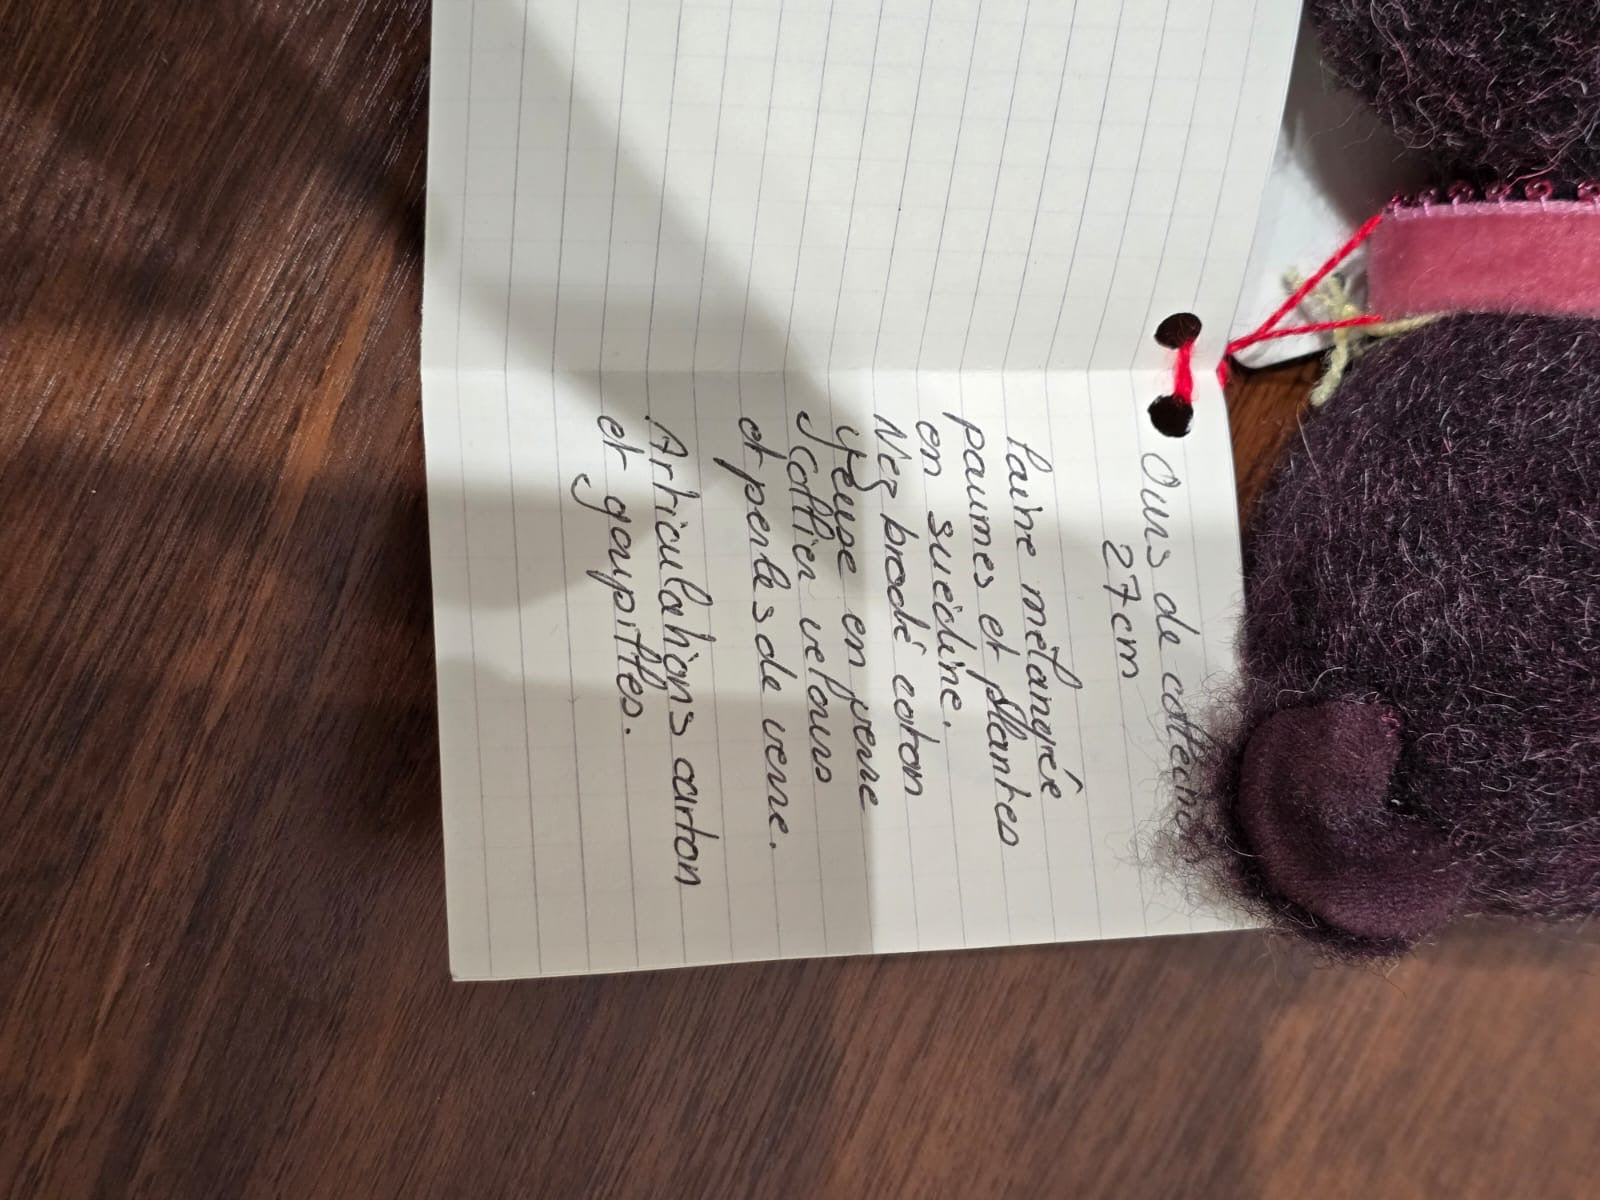 Ours de collection
27 cm
Laine mélangée
paumes et plantes
en suédine.
Nez brodé coton
yeux en verre
collier velours
et perles de verre.
Articulations carton
et goupilles.